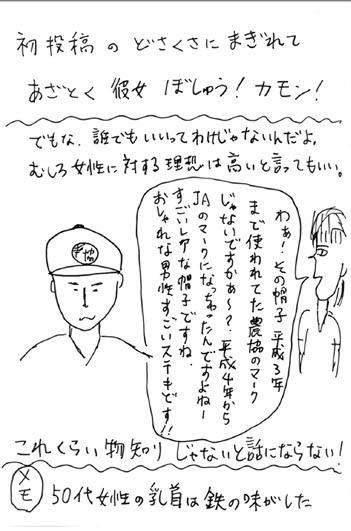 初投稿のどさくさにまぎれて
あざとく彼女ぼしゅう!カモン!
でもな、誰でもいいってわけじゃないんだよ。
むしろ女性に対する理想は高いと言ってもいい。
わぁ!その帽子平成3年
まで使われてた農協のマーク
じゃないですかぁ〜?平成4年から
JAのマークになっちゃったんですよねー
すごいレアな帽子ですね。
おしゃれな男性すごいステキです!!
協
これくらい物知りじゃないと話にならない!
メモ
50代女性の乳首は鉄の味がした